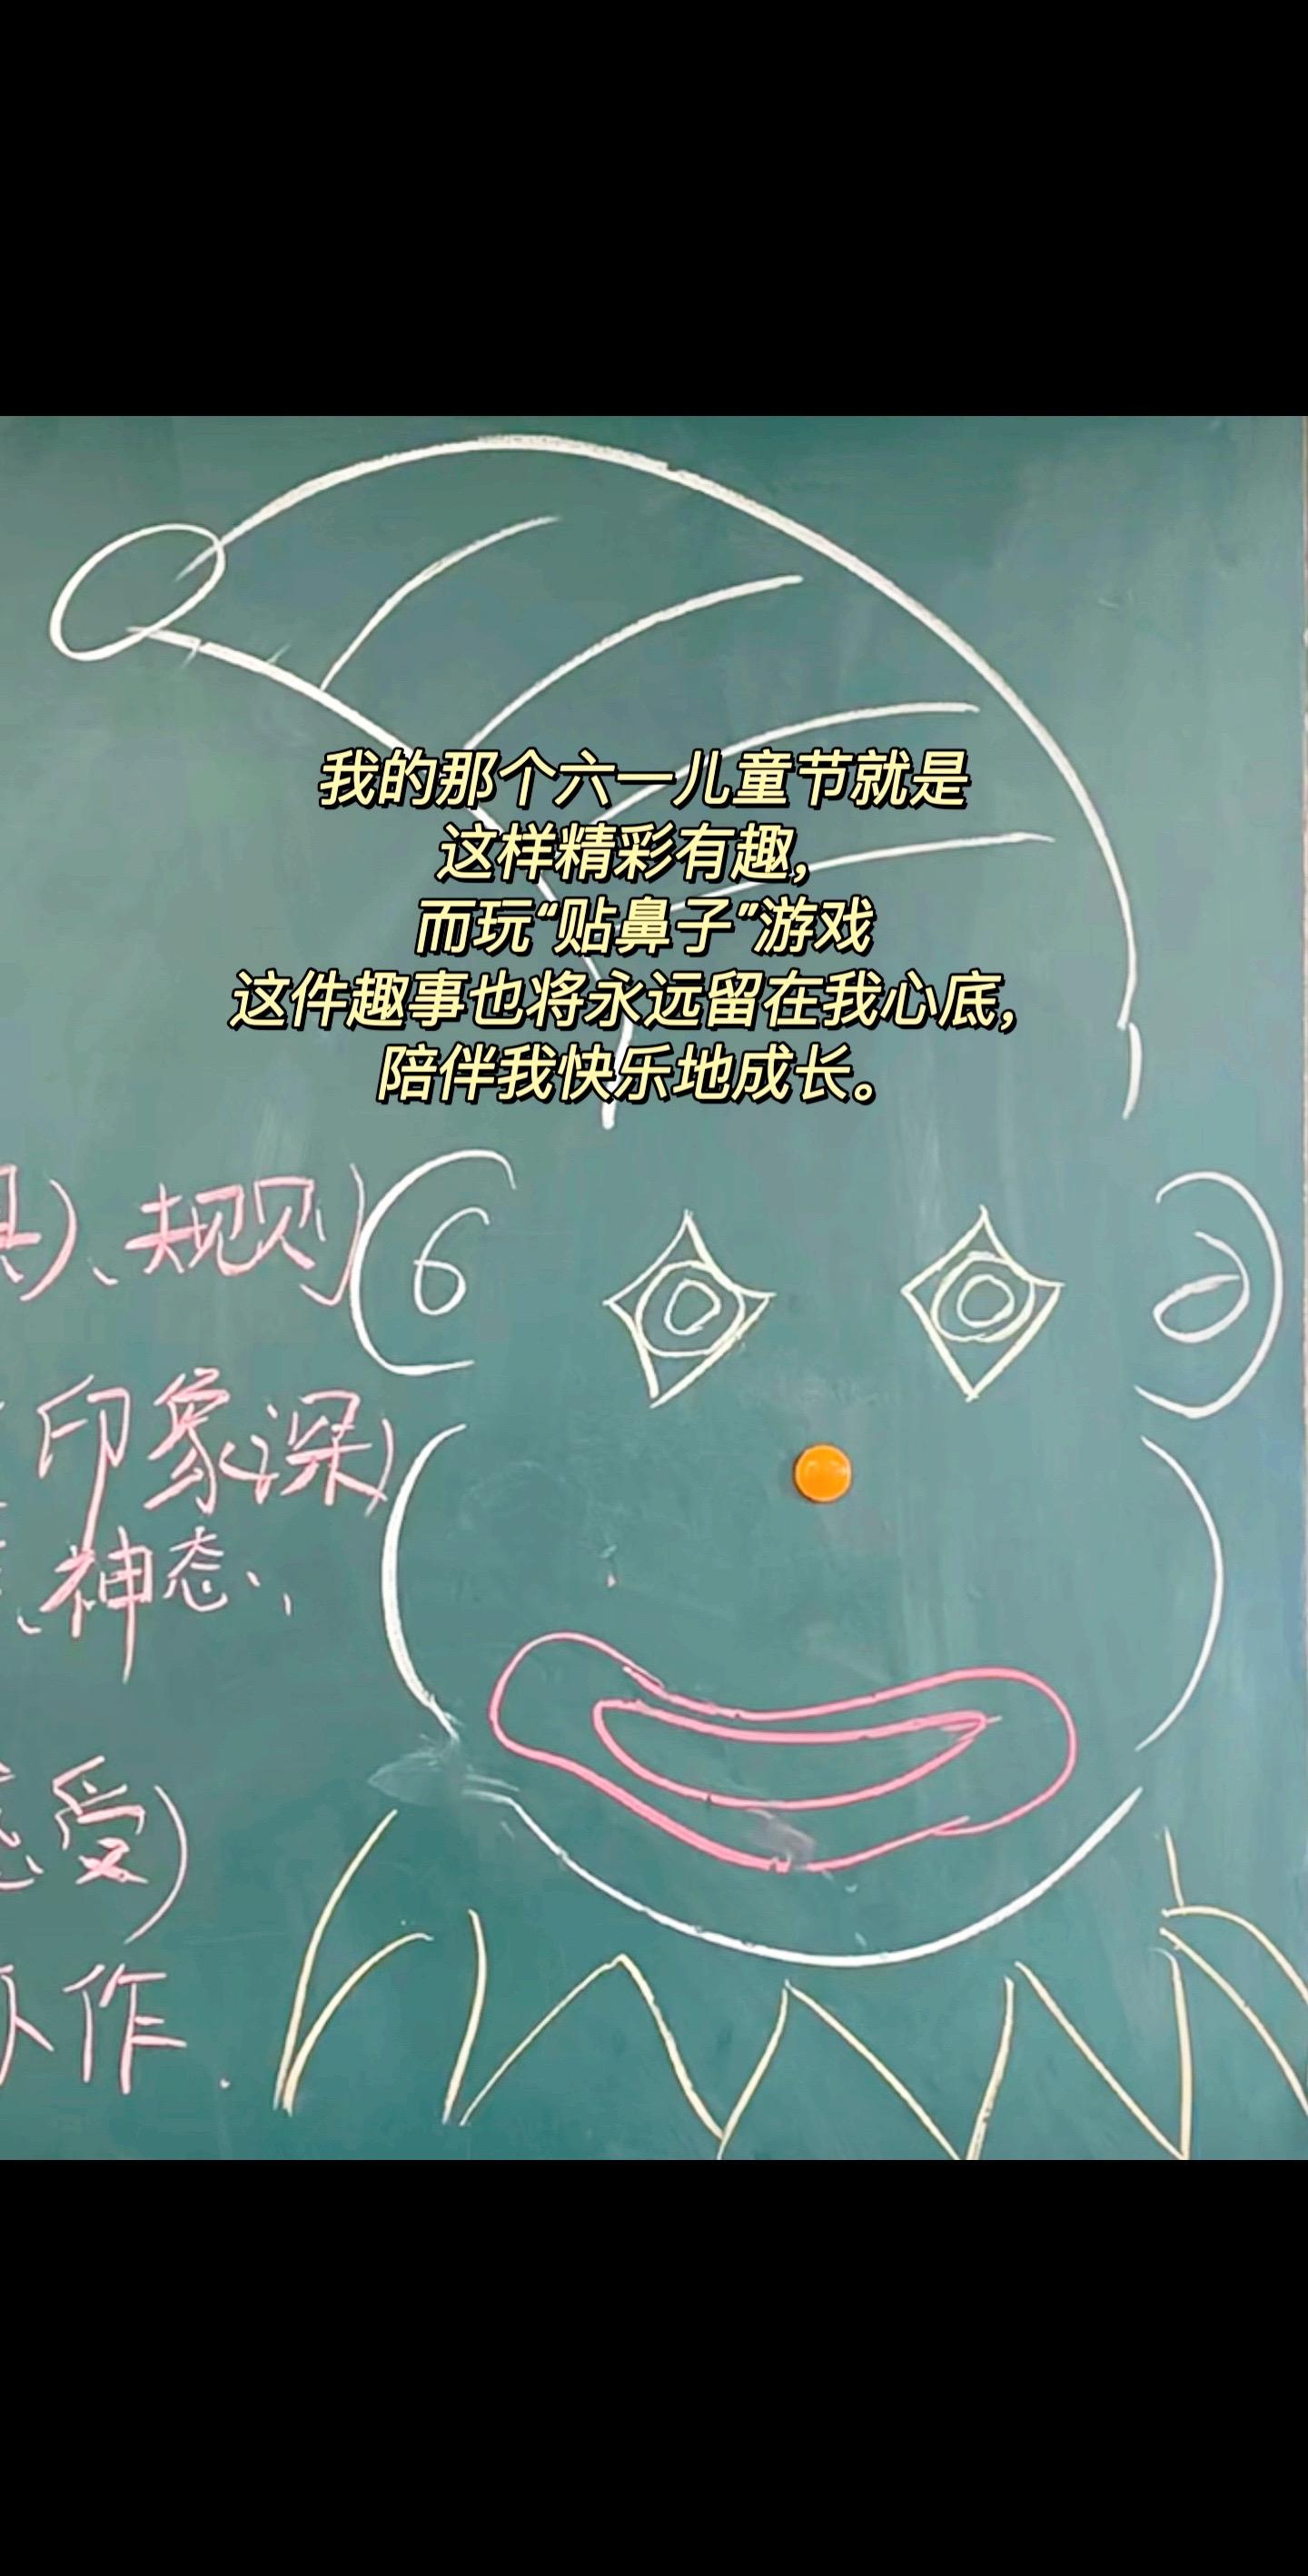 我的那个六一儿童节就是
这样精彩有趣，
而玩“贴鼻子”游戏
这件趣事也将永远留在我心底，
陪伴我快乐地成长。
）、规则
印象深
、神态、
受）
作